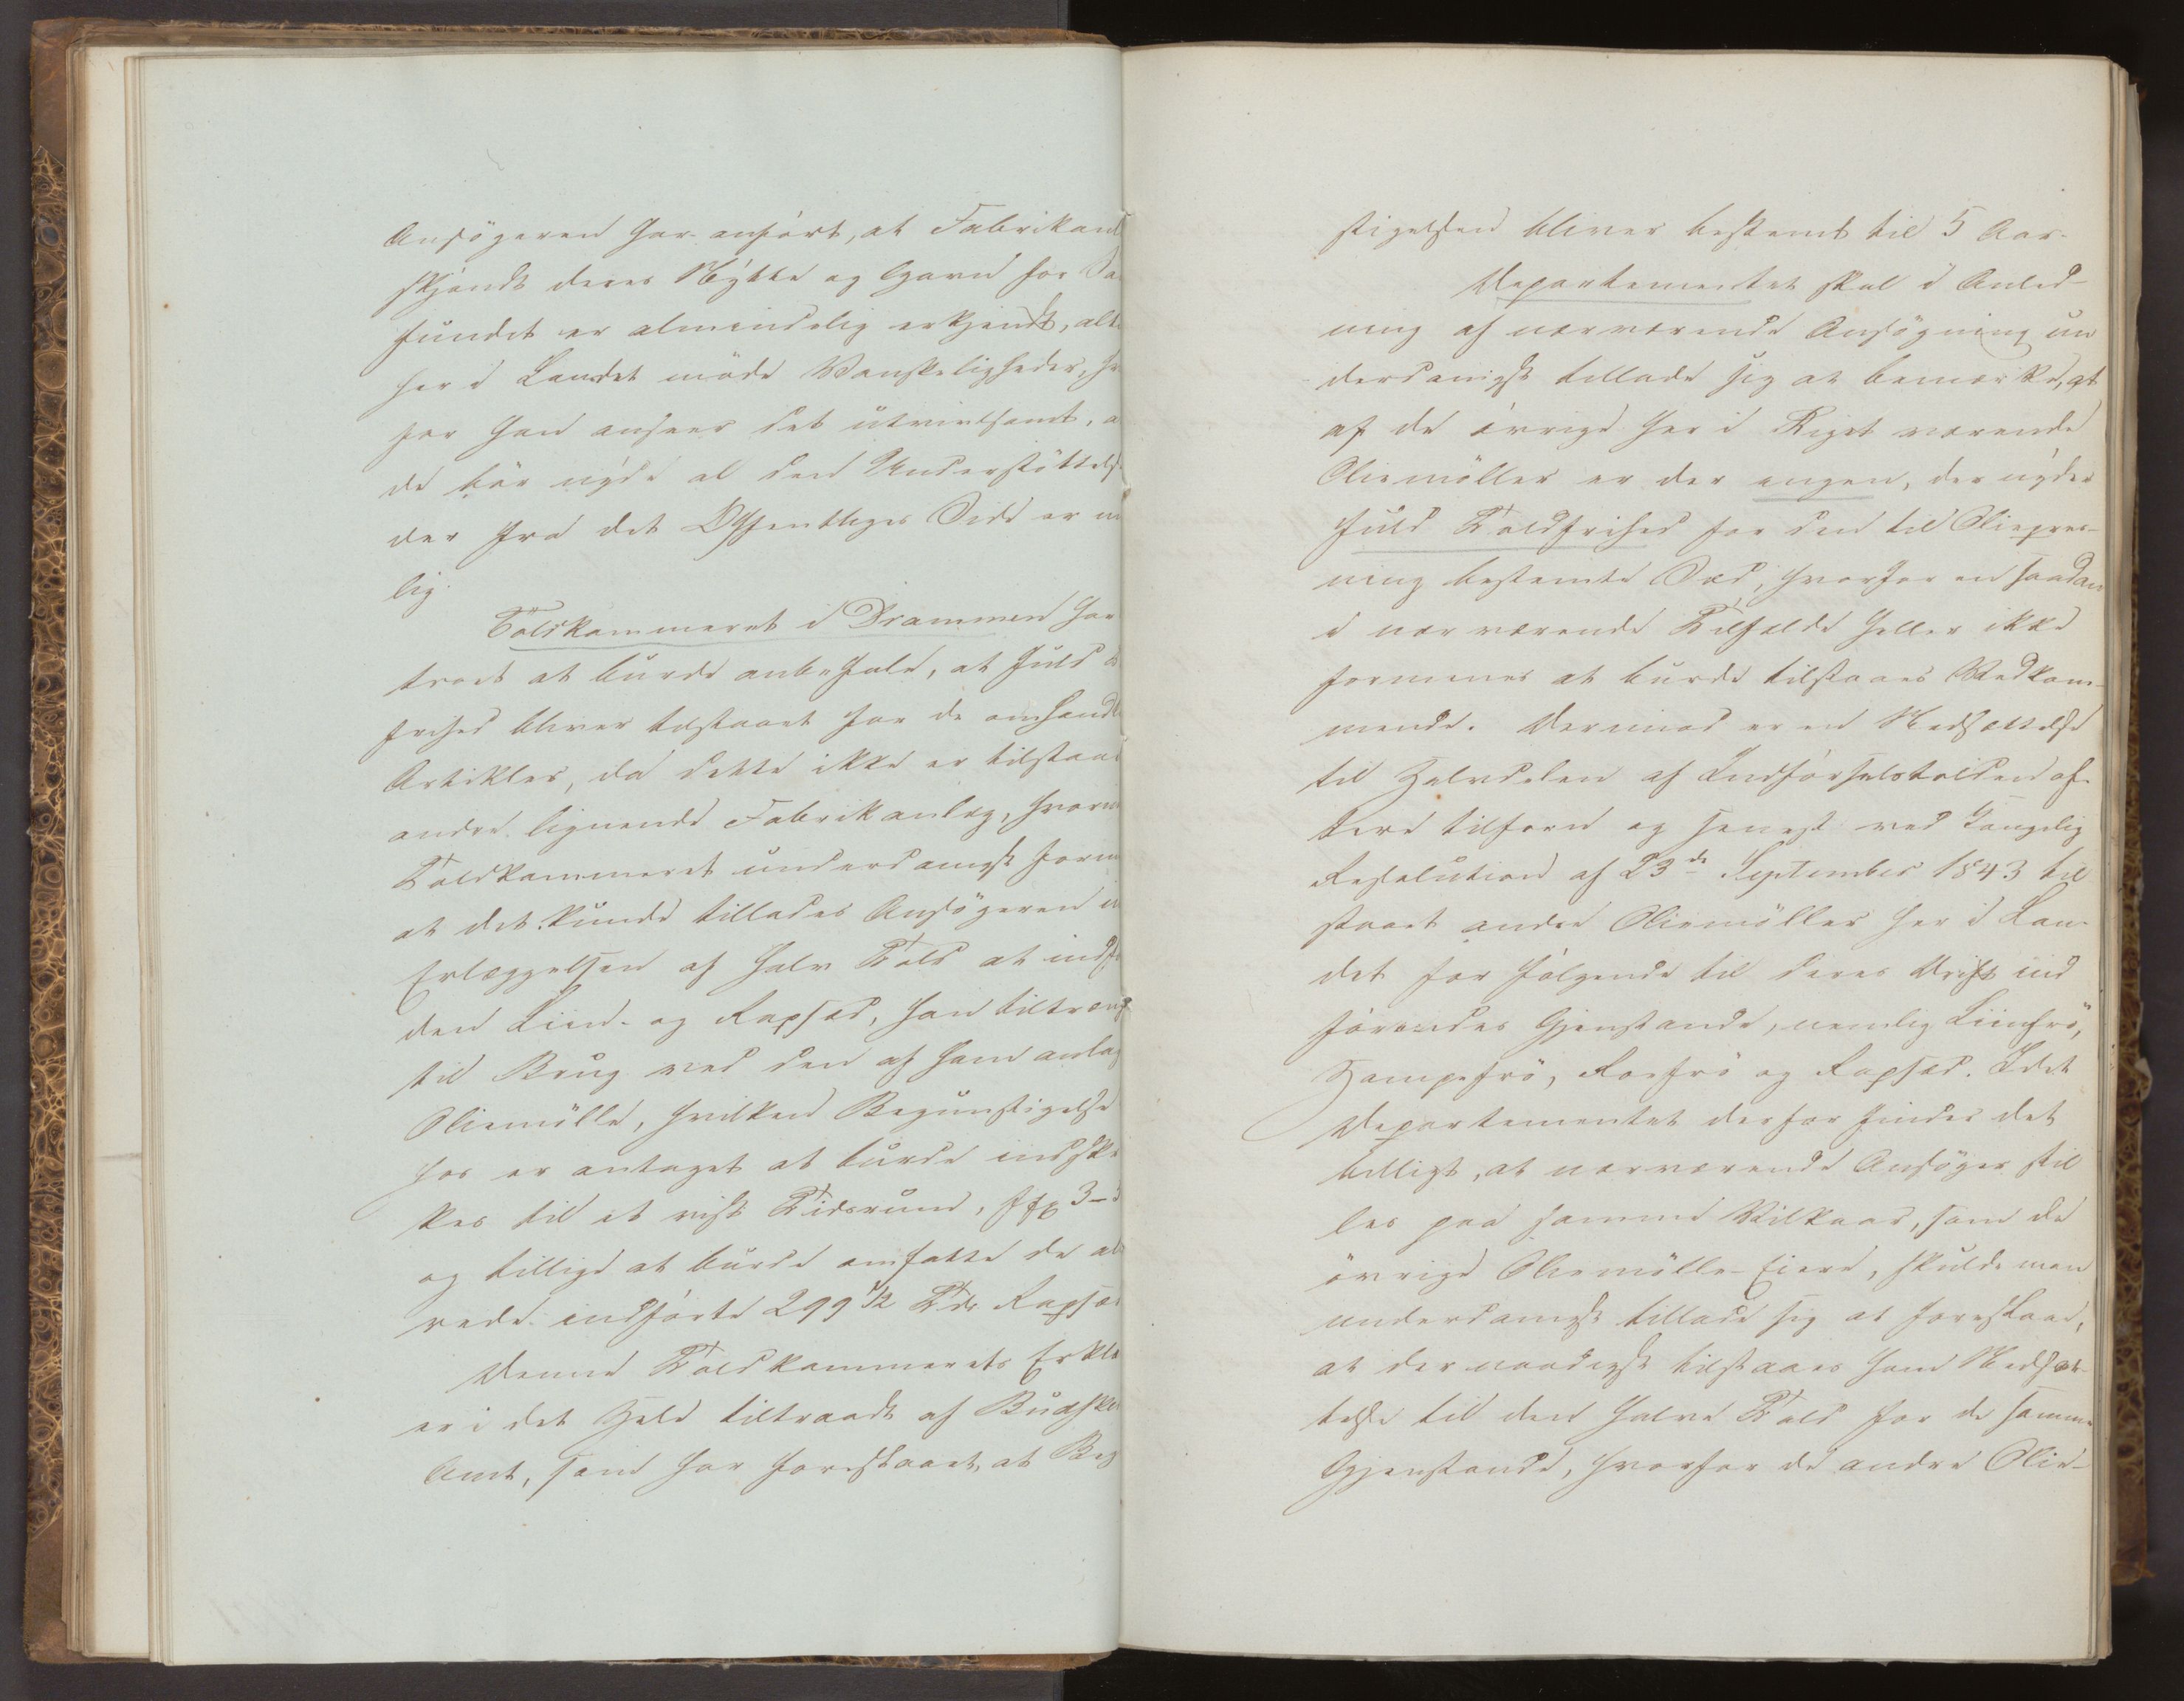 Ansögeren har anført, at Fabrikanl
skjøndt deres Nytte og Gavn for Sa
fundet er almindelig erkjendt, alt
her i Landet møde Vanskeligheder, h
for han anseer det utvivlsomt, a
de bör nyde al den Understöttels
der fra det Offentliges Side er m
lig.
Toldkammeret i Drammen har
troet at burde anbefale, at fuld
frihed bliver tilstaaet for de omhandl
Artikler, da dette ikke er tilstaa
andre lignende Fabrikanlæg, hvorim
Toldkammeret underdanigst form
at det kunde tillades Ansögeren
Erlæggelsen af halv Told at indf
den Liin- og Rapsæd, han tiltræng
til Brug ved den af ham anlag
Oliemölle, hvilken Begunstigelse
hos er antaget at burde indskr
kes til et vist Tidsrum, 3-
og tillige at burde omfatte de al
rede indførte 299 1/2 Tdr Rapsæ
Denne Toldkammerets Erklæ
er i det Hele tiltraadt af Buskr
Amt, som har foreslaaet, at Beg
stigelsen bliver bestemt til 5 Aar.
Departementet skal i Anled-
ning af nærværende Ansögning un
derdanigst tillade sig at bemærke, at
af de øvrige her i Riget værende
Oliemöller er der ingen, der nyder
fuld Toldfrihed for den til Oliepres-
ning bestemte Sæd, hvorfor en saadan
i nærværende Tilfælde heller ikke
formenes at burde tilstaaes Vedkom-
mende. Derimod er en Nedsættelse
til Halvdelen af Indførselstolden of-
tere tilforn og senest ved Kongelig
Resolution af 23de September 1843 til
staaet andre Oliemöller her i Lan-
det for følgende til deres Drift ind
førendes Gjenstande, nemlig Liinfrö,
Hampefrö, Roefrö og Rapsæd. Idet
Departementet derfor finder det
billigt, at nærværende Ansöger stil
les paa samme Vilkaar, som de
övrige Oliemölle-Eiere, skulde man
underdanigst tillade sig at foreslaae,
at der naadigst tilstaaes ham Nedsæt-
telse til den halve Told for de samme
Gjenstande, hvorfor de andre Olie-